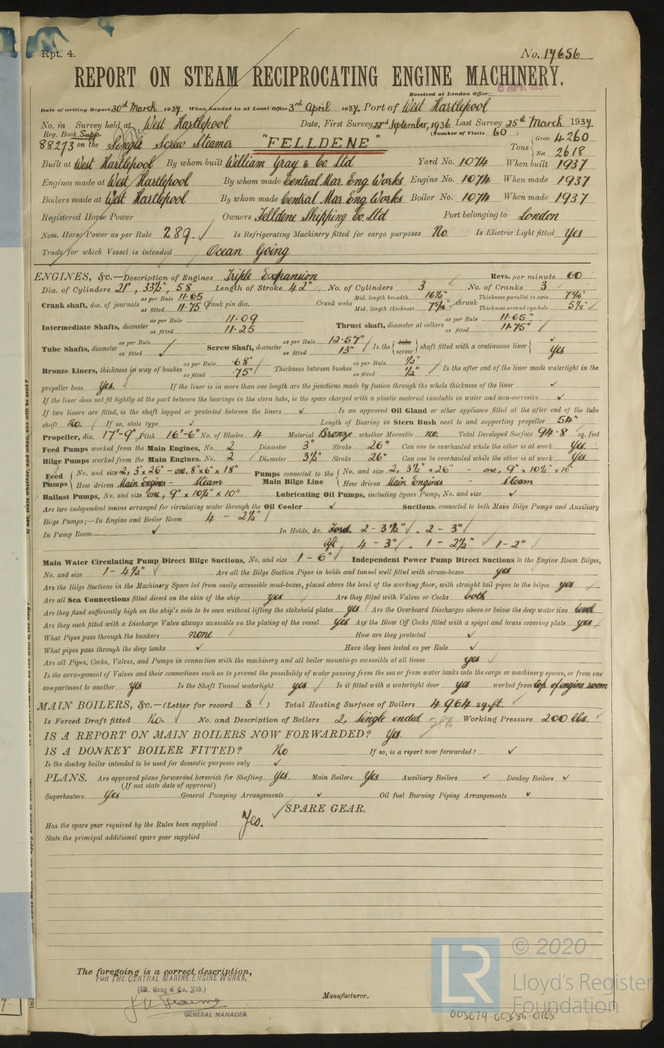 Rpt. 4. No. 17656
REPORT ON STEAM RECIPROCATING ENGINE MACHINERY.
Received at London Office
Date of writing Report 30th March 1937 When handed in at Local Office 3rd April 1937 Port of West Hartlepool
No. in Survey held at West Hartlepool Date, First Survey 22nd September, 1936 Last Survey 25th March 1937
Reg. Book. Supp. (Number of Visits 60)
88273 on the Single Screw Steamer "FELLDENE" Tons Gross 4260 Net 2618
Built at West Hartlepool By whom built William Gray & Co. Ltd Yard No. 1074 When built 1937
Engines made at West Hartlepool By whom made Central Mar. Eng. Works Engine No. 1074 When made 1937
Boilers made at West Hartlepool By whom made Central Mar. Eng. Works Boiler No. 1074 When made 1937
Registered Horse Power Owners Felldene Shipping Co. Ltd Port belonging to London
Nom. Horse Power as per Rule 289. Is Refrigerating Machinery fitted for cargo purposes No. Is Electric Light fitted Yes
Trade for which Vessel is intended Ocean Going
ENGINES, &c.—Description of Engines Triple Expansion Revs. per minute 60
Dia. of Cylinders 21", 33½", 58 Length of Stroke 42" No. of Cylinders 3 No. of Cranks 3
Crank shaft, dia. of journals as per Rule 11.65 as fitted 11.75 Crank pin dia. Crank webs Mid. length breadth 16½" Mid. length thickness shrunk Thickness parallel to axis Thickness around eye-hole
Intermediate Shafts, diameter as per Rule 11.09 as fitted 11.25 Thrust shaft, diameter at collars as per Rule 11.65" as fitted 11.75"
Tube Shafts, diameter as per Rule as fitted Screw Shaft, diameter as per Rule 12.57" as fitted 13" Is the tube screw shaft fitted with a continuous liner Yes
Bronze Liners, thickness in way of bushes as per Rule .68" as fitted .75" Thickness between bushes as per Rule ½" as fitted ½" Is the after end of the liner made watertight in the
propeller boss Yes. If the liner is in more than one length are the junctions made by fusion through the whole thickness of the liner ✓
If the liner does not fit tightly at the part between the bearings in the stern tube, is the space charged with a plastic material insoluble in water and non-corrosive ✓
If two liners are fitted, is the shaft lapped or protected between the liners ✓ Is an approved Oil Gland or other appliance fitted at the after end of the tube
shaft No. If so, state type ✓ Length of Bearing in Stern Bush next to and supporting propeller 54"
Propeller, dia. 17'-9" Pitch 16'-6" No. of Blades 4 Material Bronze whether Moveable no. Total Developed Surface 94.8 sq. feet
Feed Pumps worked from the Main Engines, No. 2 Diameter 3" Stroke 26" Can one be overhauled while the other is at work Yes
Bilge Pumps worked from the Main Engines, No. 2 Diameter 3½" Stroke 26" Can one be overhauled while the other is at work Yes.
Feed Pumps No. and size 2, 3"x26" - one, 8"x6"x18" Pumps connected to the Main Bilge Line No. and size 2, 3½"x26" - one, 9"x10½"x10"
How driven Main Engines - Steam How driven Main Engines - Steam
Ballast Pumps, No. and size one, 9"x10½"x10" Lubricating Oil Pumps, including Spare Pump, No. and size ✓
Are two independent means arranged for circulating water through the Oil Cooler ✓ Suctions, connected to both Main Bilge Pumps and Auxiliary
Bilge Pumps;—In Engine and Boiler Room 4 - 2½"
In Pump Room ✓ In Holds, &c. Ford. 2 - 3½". 2 - 3"
Aft, 4 - 3". 1 - 2½" 1 - 2"
Main Water Circulating Pump Direct Bilge Suctions, No. and size 1 - 6" Independent Power Pump Direct Suctions to the Engine Room Bilges,
No. and size 1 - 4½" Are all the Bilge Suction Pipes in holds and tunnel well fitted with strum-boxes yes
Are the Bilge Suctions in the Machinery Space led from easily accessible mud-boxes, placed above the level of the working floor, with straight tail pipes to the bilges yes
Are all Sea Connections fitted direct on the skin of the ship yes Are they fitted with Valves or Cocks both
Are they fixed sufficiently high on the ship's side to be seen without lifting the stokehold plates yes Are the Overboard Discharges above or below the deep water line
Are they each fitted with a Discharge Valve always accessible on the plating of the vessel yes Are the Blow Off Cocks fitted with a spigot and brass covering plate yes
What Pipes pass through the bunkers none How are they protected ✓
What pipes pass through the deep tanks ✓ Have they been tested as per Rule ✓
Are all Pipes, Cocks, Valves, and Pumps in connection with the machinery and all boiler mountings accessible at all times yes
Is the arrangement of Valves and their connections such as to prevent the possibility of water passing from the sea or from water tanks into the cargo or machinery spaces, or from one
compartment to another yes Is the Shaft Tunnel watertight yes Is it fitted with a watertight door yes worked from top of engine room
MAIN BOILERS, &c.—(Letter for record S) Total Heating Surface of Boilers 4964 sq. ft
Is Forced Draft fitted No. No. and Description of Boilers 2, Single ended Working Pressure 200 lbs.
IS A REPORT ON MAIN BOILERS NOW FORWARDED? Yes.
IS A DONKEY BOILER FITTED? No If so, is a report now forwarded? ✓
Is the donkey boiler intended to be used for domestic purposes only ✓
PLANS. Are approved plans forwarded herewith for Shafting Yes. Main Boilers Yes Auxiliary Boilers ✓ Donkey Boilers ✓
(If not state date of approval)
Superheaters Yes General Pumping Arrangements ✓ Oil fuel Burning Piping Arrangements ✓
SPARE GEAR.
Has the spare gear required by the Rules been supplied Yes.
State the principal additional spare gear supplied
The foregoing is a correct description,
FOR THE CENTRAL MARINE ENGINE WORKS,
(Wm. Gray & Co. Ltd.)
GENERAL MANAGER
Manufacturer.
© 2020
LR
Lloyd's Register
Foundation
005679-005686-0165